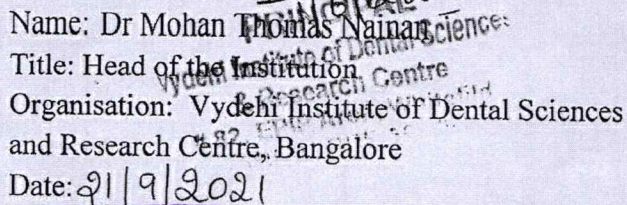 Name: Dr Mohan Thomas Nainan
Title: Head of the Institution
Organisation: Vydehi Institute of Dental Sciences
and Research Centre, Bangalore
Date: 21/9/2021
Vydehi Institute of Dental Sciences
& Research Centre